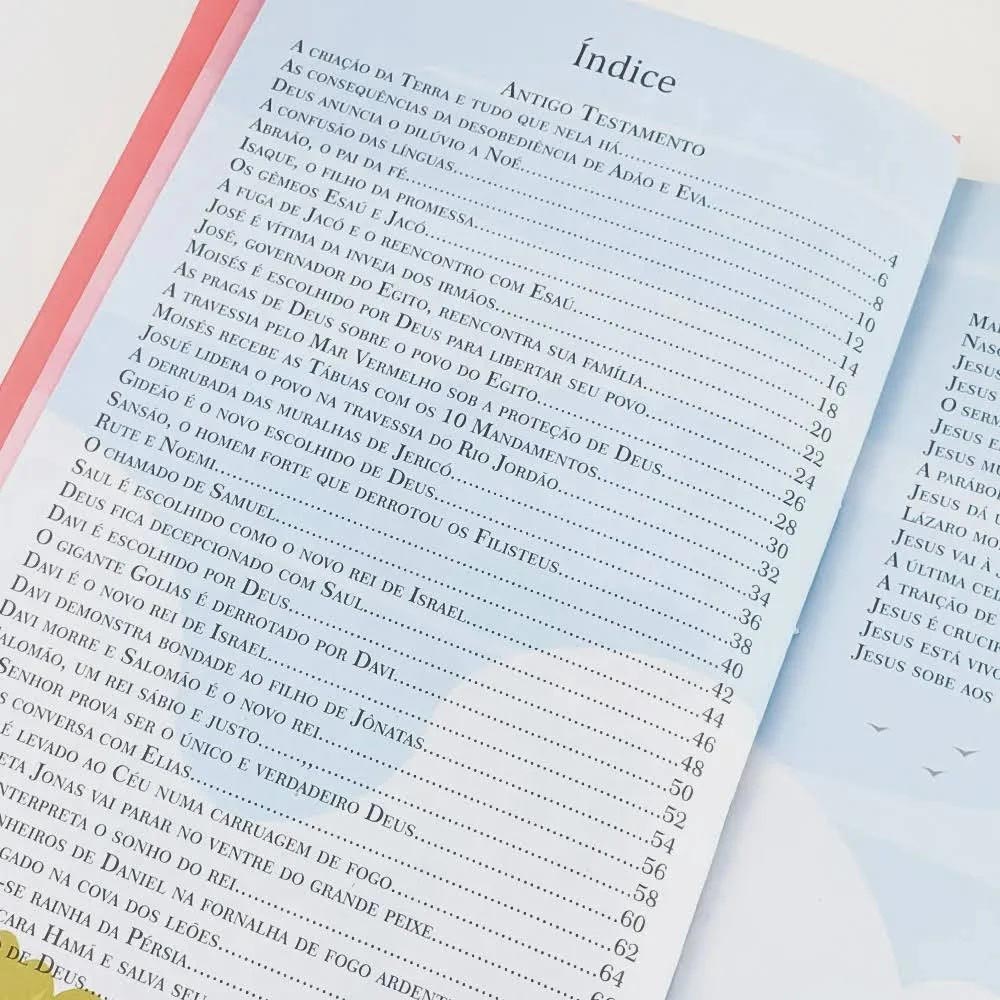 Índice
Antigo Testamento
A criação da Terra e tudo que nela há........4
As consequências da desobediência de Adão e Eva........6
Deus anuncia o dilúvio a Noé........8
A confusão das línguas........10
Abraão, o pai da fé........12
Isaque, o filho da promessa........14
Os gêmeos Esaú e Jacó........16
A fuga de Jacó e o reencontro com Esaú........18
José é vítima da inveja dos irmãos........20
José, governador do Egito, reencontra sua família........22
Moisés é escolhido por Deus para libertar seu povo........24
As pragas de Deus sobre o povo do Egito........26
A travessia pelo Mar Vermelho sob a proteção de Deus........28
Moisés recebe as Tábuas com os 10 Mandamentos........30
Josué lidera o povo na travessia do Rio Jordão........32
A derrubada das muralhas de Jericó........34
Gideão é o novo escolhido de Deus........36
Sansão, o homem forte que derrotou os Filisteus........38
Rute e Noemi........40
O chamado de Samuel........42
Saul é escolhido como o novo rei de Israel........44
Deus fica decepcionado com Saul........46
Davi é escolhido por Deus........48
O gigante Golias é derrotado por Davi........50
Davi é o novo rei de Israel........52
Davi demonstra bondade ao filho de Jônatas........54
Davi morre e Salomão é o novo rei........56
alomão, um rei sábio e justo........58
Senhor prova ser o único e verdadeiro Deus........60
s conversa com Elias........62
é levado ao Céu numa carruagem de fogo........64
eta Jonas vai parar no ventre do grande peixe........
nterpreta o sonho do rei........
nheiros de Daniel na fornalha de fogo ardent
gado na cova dos leões........
-se rainha da Pérsia........
cara Hamã e salva seu
o de Deus........
Mar
Nasc
Jesus
Jesus
O serm
Jesus e
Jesus mu
A parábol
Jesus dá u
Lázaro mo
Jesus vai à
A última cei
A traição de
Jesus é crucif
Jesus está vivo
Jesus sobe aos